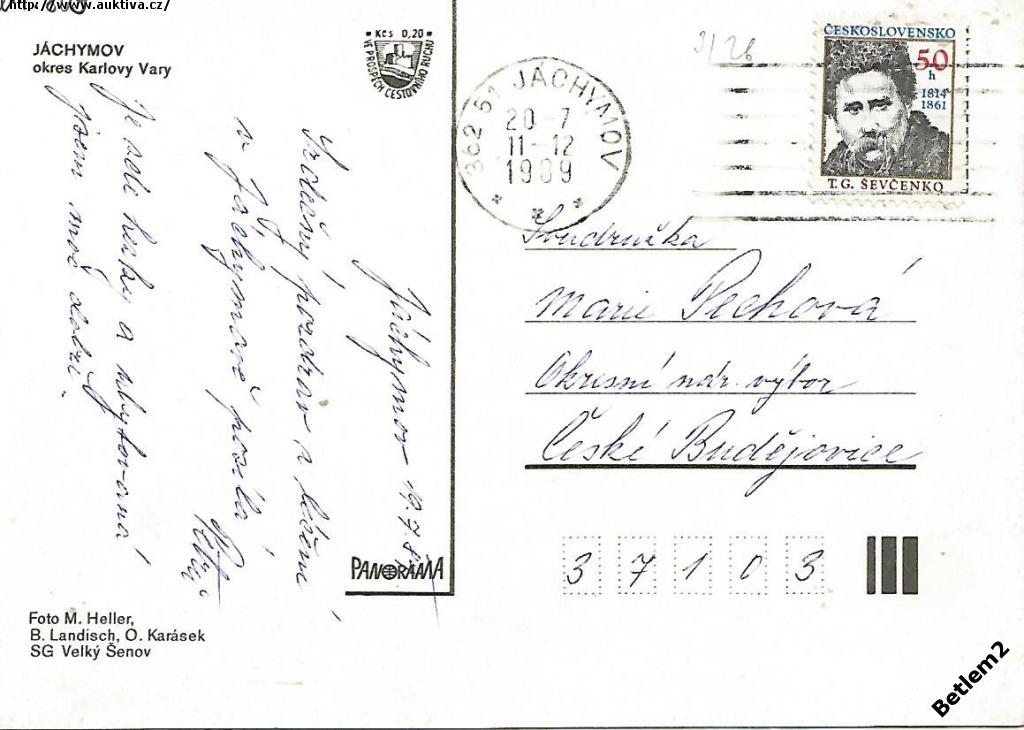 http://www.auktiva.cz/
JÁCHYMOV
okres Karlovy Vary
Kčs 0,20
VE PROSPĚCH CESTOVNÍHO RUCHU
362 51 JÁCHYMOV
20-7
11-12
1989
9/26
ČESKOSLOVENSKO
50
h
1814
1861
T.G. ŠEVČENKO
Jáchymov 19.7.89
Srdečný pozdrav z léčení
v Jáchymově posílá
Je zde hezky a ubytovaná
jsem moc dobře.
Soudružka
Marie Pechová
Okresní nár. výbor
České Budějovice
37103
PANORAMA
Foto M. Heller,
B. Landisch, O. Karásek
SG Velký Šenov
Betlem2